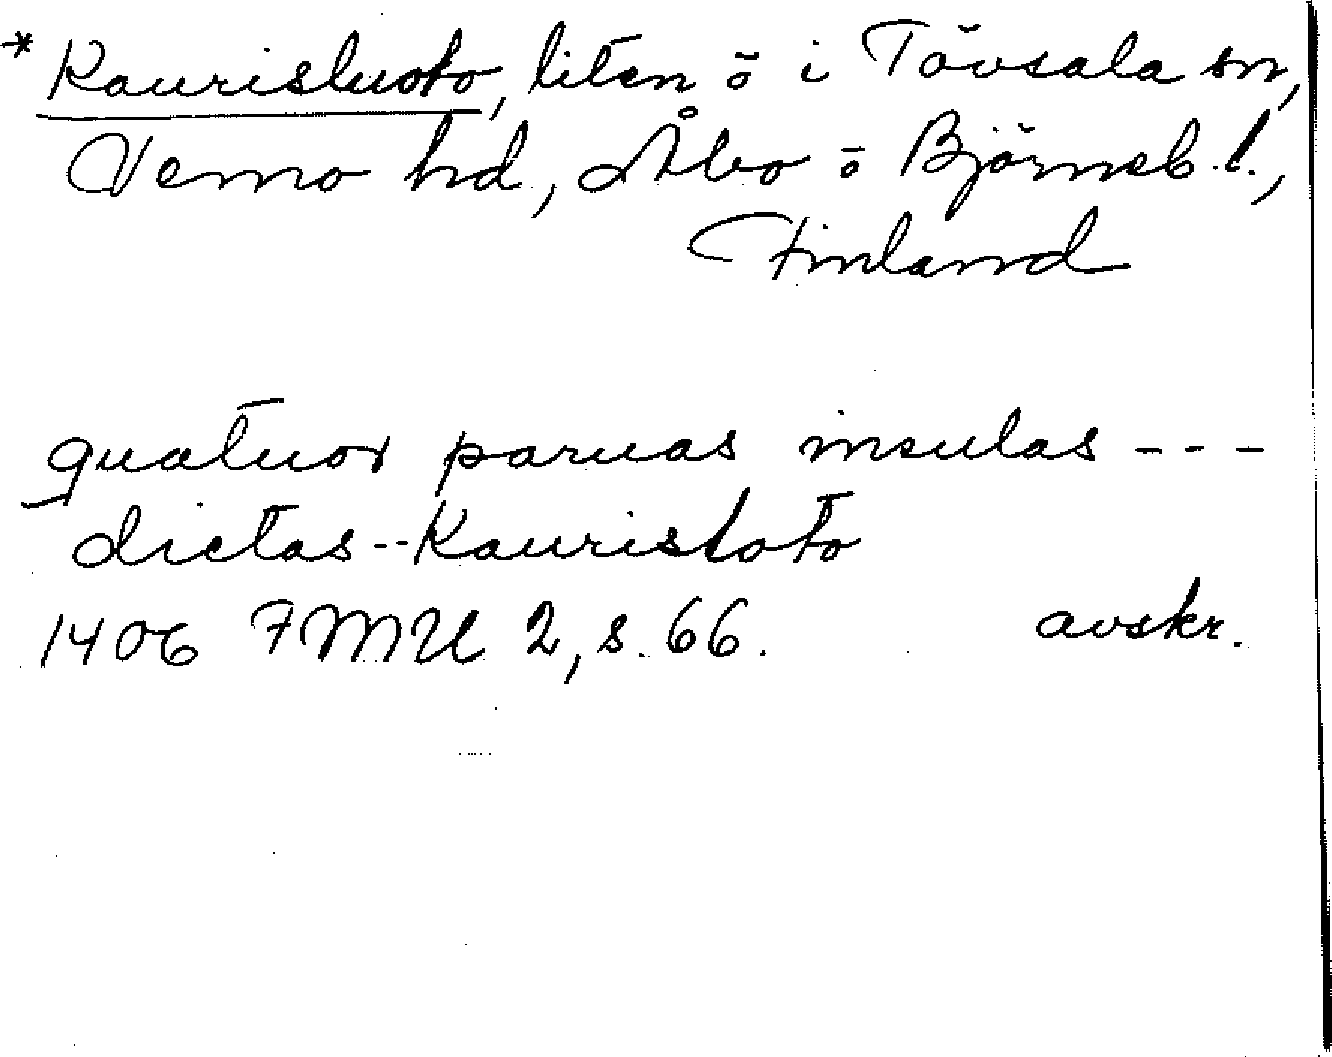 * Kaurisluoto, liten ö i Tövsala sn,
Vemo hd, Åbo o Björneb. l.,
Finland
quatuor paruas insulas ---
dictas -- Kauristoto
1406 FMU 2, s. 66. avskr.